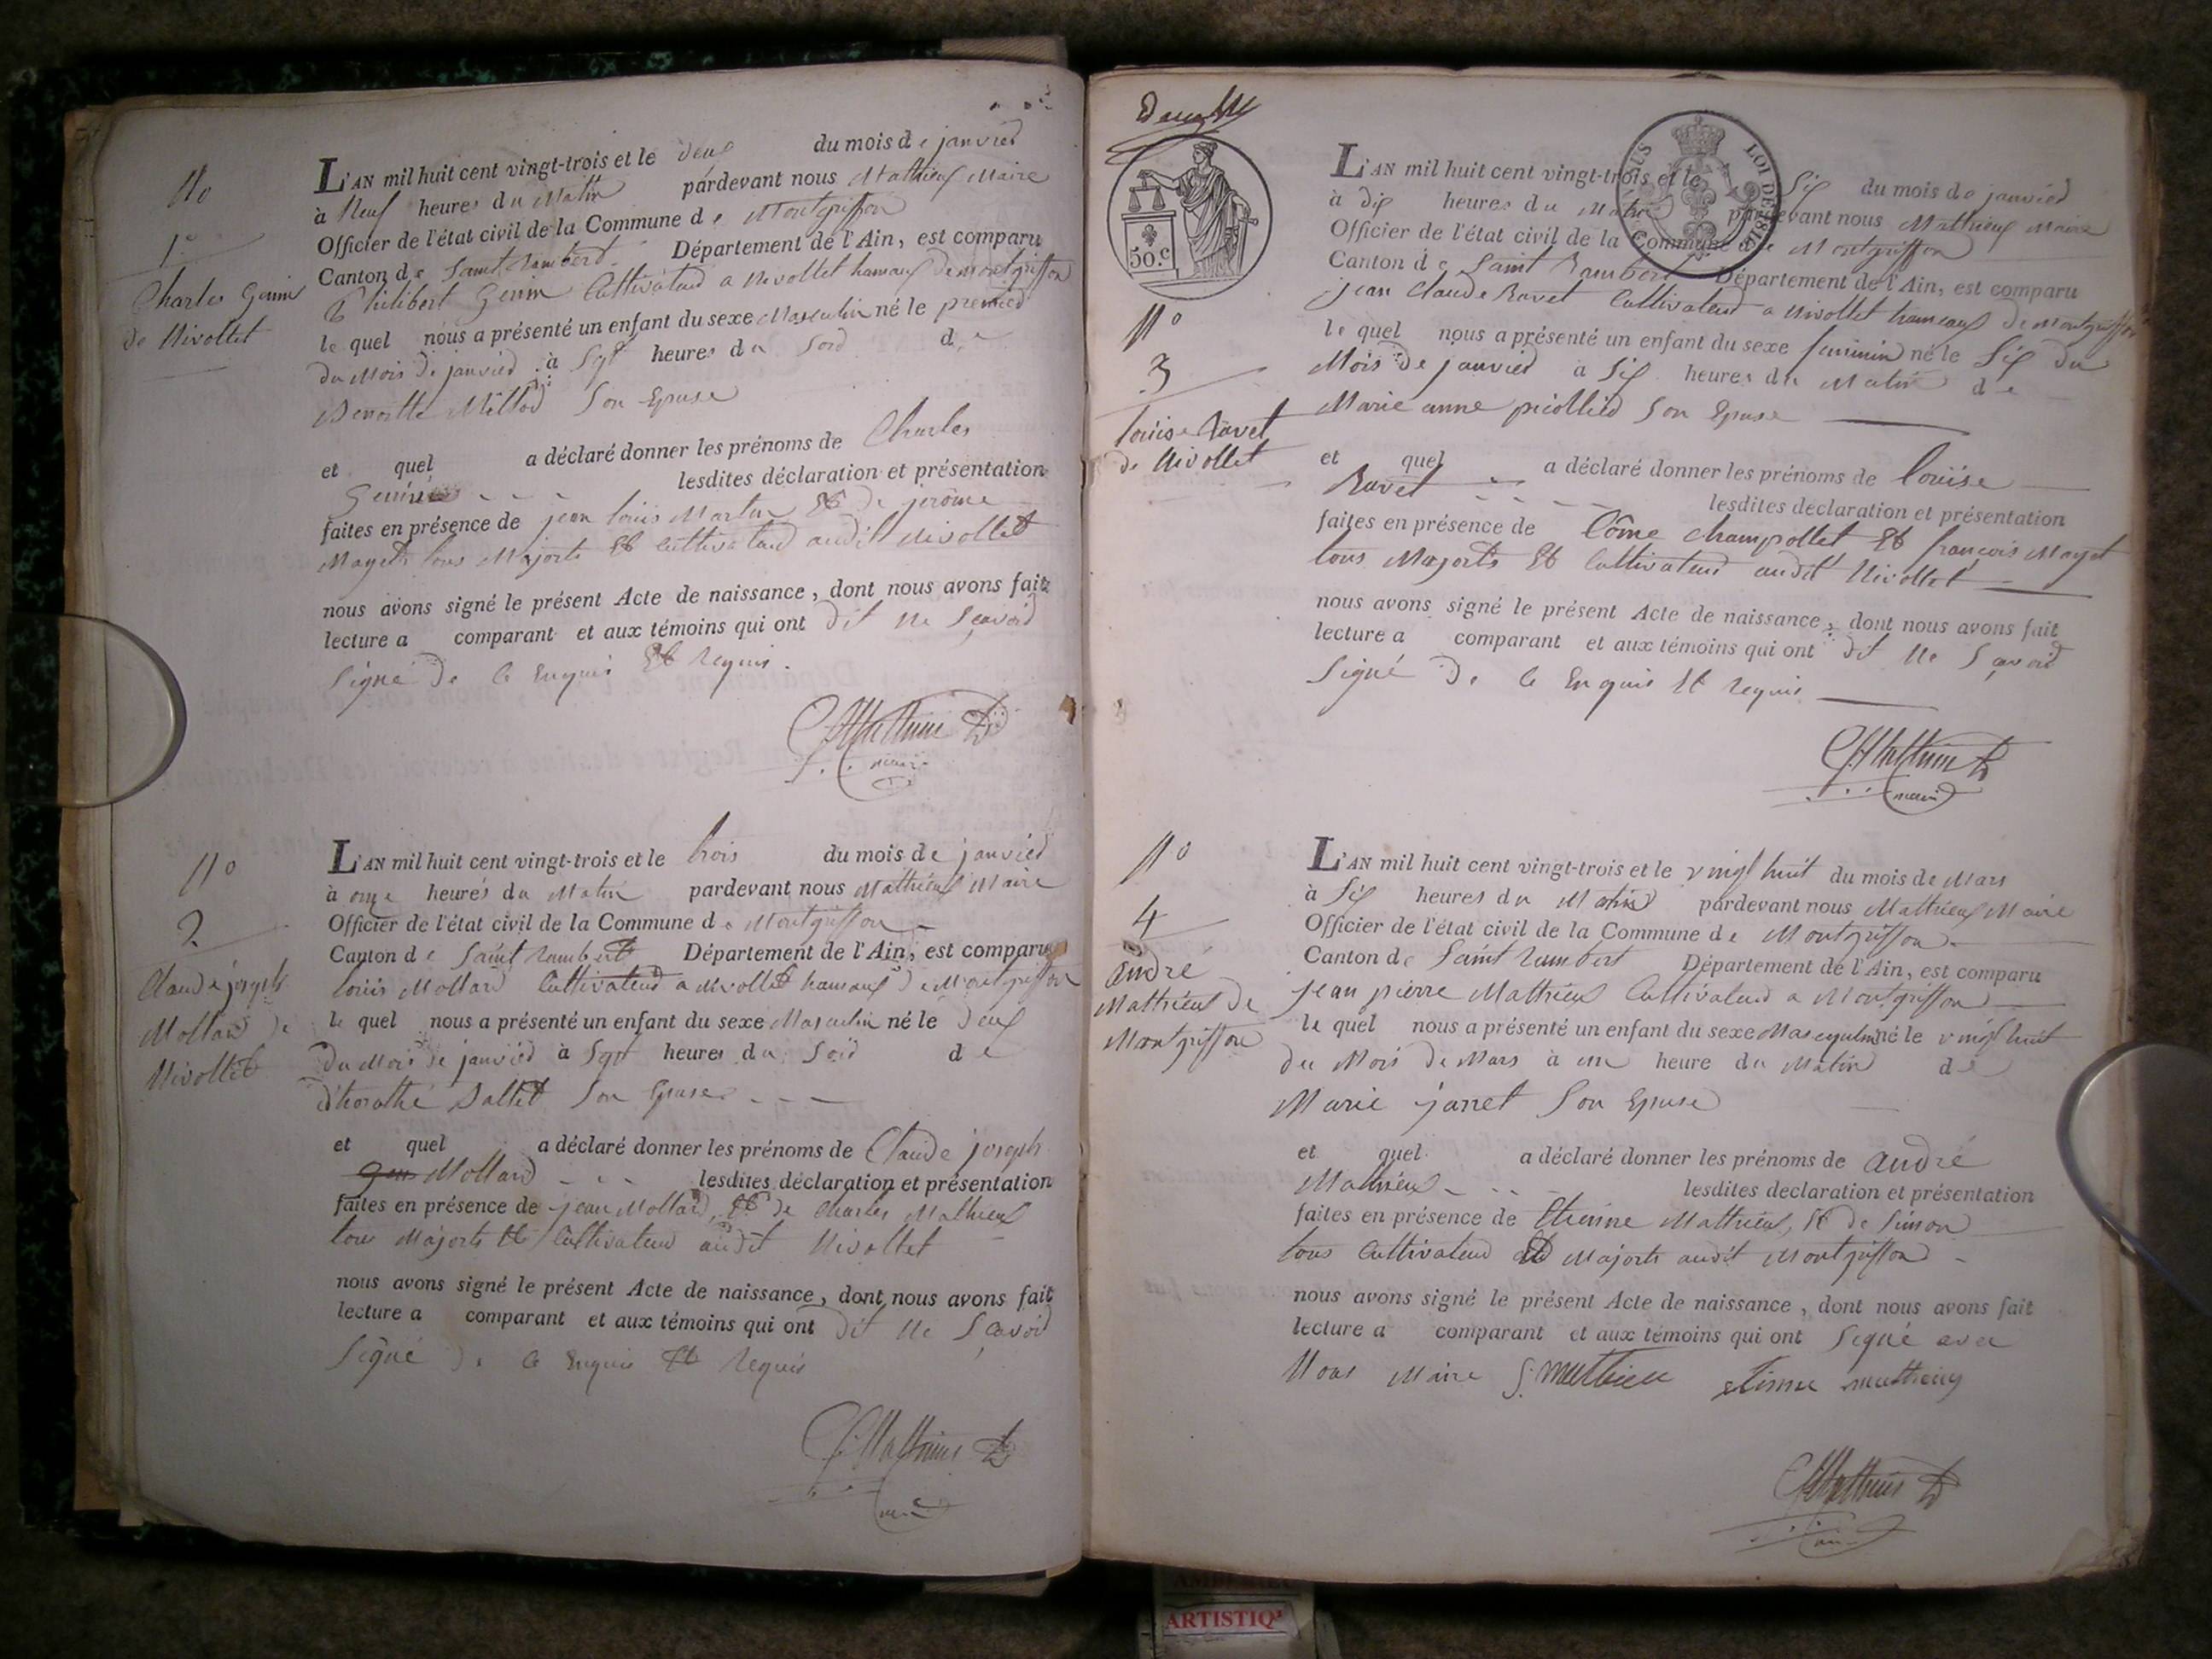 No
1o
Charles Genin
de Nivollet
L'AN mil huit cent vingt-trois et le deux du mois de janvier
à Neuf heures du Matin pardevant nous Mathieux Maire
Officier de l'état civil de la Commune de Montgriffon
Canton de Saint Rambert Département de l'Ain, est comparu
Philibert Genin Cultivateur a Nivollet hameaux de montgriffon
le quel nous a présenté un enfant du sexe Masculin né le premier
du Mois de janvier à Sept heures du Soir de
Benoitte Son Epuse
et quel a déclaré donner les prénoms de Charles
Genin lesdites déclaration et présentation
faites en présence de jean louis Martin Et de jerôme
Mayet tous Majorts Et Cultivateur audit Nivollet
nous avons signé le présent Acte de naissance, dont nous avons fait
lecture a comparant et aux témoins qui ont dit Ne Sçavoir
Signé De Ce Enquis Et requis.
Mathieux
maire
No
2
Claude joseph
Mollard de
Nivollet
L'AN mil huit cent vingt-trois et le trois du mois de janvier
à onze heures du Matin pardevant nous Mathieux Maire
Officier de l'état civil de la Commune de Montgriffon
Canton de Saint Rambert Département de l'Ain, est comparu
louis Mollard Cultivateur a Nivollet hameaux de Montgriffon
le quel nous a présenté un enfant du sexe Masculin né le deux
du Mois de janvier à Sept heures du Soir de
dhorothé Ballet Son Epuse
et quel a déclaré donner les prénoms de Claude joseph
Mollard lesdites déclaration et présentation
faites en présence de jean Mollard, Et de Charles Mathieux
tous Majorts Et Cultivateur audit Nivollet
nous avons signé le présent Acte de naissance, dont nous avons fait
lecture a comparant et aux témoins qui ont dit Ne Sçavoir
Signé De Ce Enquis Et requis
Mathieux
50.c
LOI DE 1816
No
3
louise Ravet
de Nivollet
L'AN mil huit cent vingt-trois et le Six du mois de janvier
à dix heures du Matin pardevant nous Mathieux Maire
Officier de l'état civil de la Commune de Montgriffon
Canton de Saint Rambert Département de l'Ain, est comparu
jean Claude Ravet Cultivateur a Nivollet hameaux de Montgriffon
le quel nous a présenté un enfant du sexe feminin né le Six du
Mois de janvier à Six heures du Matin de
Marie anne picollier Son Epuse
et quel a déclaré donner les prénoms de louise
Ravet lesdites declaration et présentation
faites en présence de Côme Champollet Et françois Mayet
tous Majorts Et Cultivateur audit Nivollet
nous avons signé le présent Acte de naissance, dont nous avons fait
lecture a comparant et aux témoins qui ont dit Ne Sçavoir
Signé De Ce Enquis Et requis
Mathieux
maire
No
4
andré
Mathieux de
Montgriffon
L'AN mil huit cent vingt-trois et le vingt huit du mois de Mars
à Six heures du Matin pardevant nous Mathieux Maire
Officier de l'état civil de la Commune de Montgriffon
Canton de Saint Rambert Département de l'Ain, est comparu
jean pierre Mathieux Cultivateur a Montgriffon
le quel nous a présenté un enfant du sexe Masculin né le vingt huit
du Mois de Mars à une heure du Matin de
Marie janet Son Epuse
et quel a déclaré donner les prénoms de andré
Mathieux lesdites declaration et présentation
faites en présence de Etienne Mathieux, Et de Simon
tous Cultivateur Et Majorts audit Montgriffon
nous avons signé le présent Acte de naissance, dont nous avons fait
lecture a comparant et aux témoins qui ont Signé avec
Nous Maire S. mathieu etienne mathieu
Mathieux
ARTISTIQ